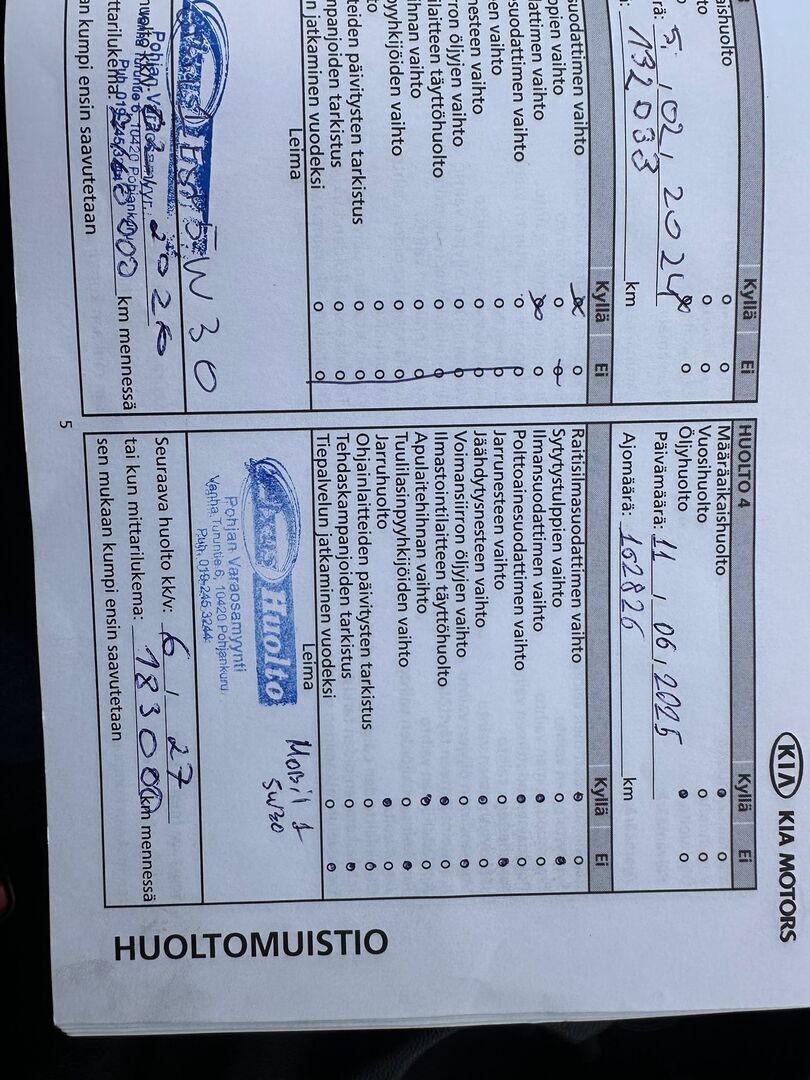 KIA KIA MOTORS
HUOLTOMUISTIO
aishuolto
to
to
rä: 5. / 02 / 2024
132033 km
Kyllä Ei
suodattimen vaihto
ppien vaihto
attimen vaihto
suodattimen vaihto
en vaihto
nesteen vaihto
rron öljyjen vaihto
laitteen täyttöhuolto
ihnan vaihto
pyyhkijöiden vaihto
to
teiden päivitysten tarkistus
mpanjoiden tarkistus
n jatkaminen vuodeksi
Leima
5W30
Pohjan Varaosamyynti
Vanha Turuntie 6, 10420 Pohjankuru
Puh. 019-245 3244
huolto kk/v: 2026
ttarilukema: 000 km mennessä
an kumpi ensin saavutetaan
5
HUOLTO 4 Kyllä Ei
Määräaikaishuolto
Vuosihuolto
Öljyhuolto
Päivämäärä: 11 / 06 / 2025
Ajomäärä: 152826 km
Kyllä Ei
Raitisilmasuodattimen vaihto
Sytytystulppien vaihto
Ilmansuodattimen vaihto
Polttoainesuodattimen vaihto
Jarrunesteen vaihto
Jäähdytysnesteen vaihto
Voimansiirron öljyjen vaihto
Ilmastointilaitteen täyttöhuolto
Apulaitehihnan vaihto
Tuulilasinpyyhkijöiden vaihto
Jarruhuolto
Ohjainlaitteiden päivitysten tarkistus
Tehdaskampanjoiden tarkistus
Tiepalvelun jatkaminen vuodeksi
Leima
Fixus Huolto
Pohjan Varaosamyynti
Vanha Turuntie 6, 10420 Pohjankuru
Puh. 019-245 3244
Mobil 1
5W30
Seuraava huolto kk/v: 6 / 27
tai kun mittarilukema: 183000 km mennessä
sen mukaan kumpi ensin saavutetaan